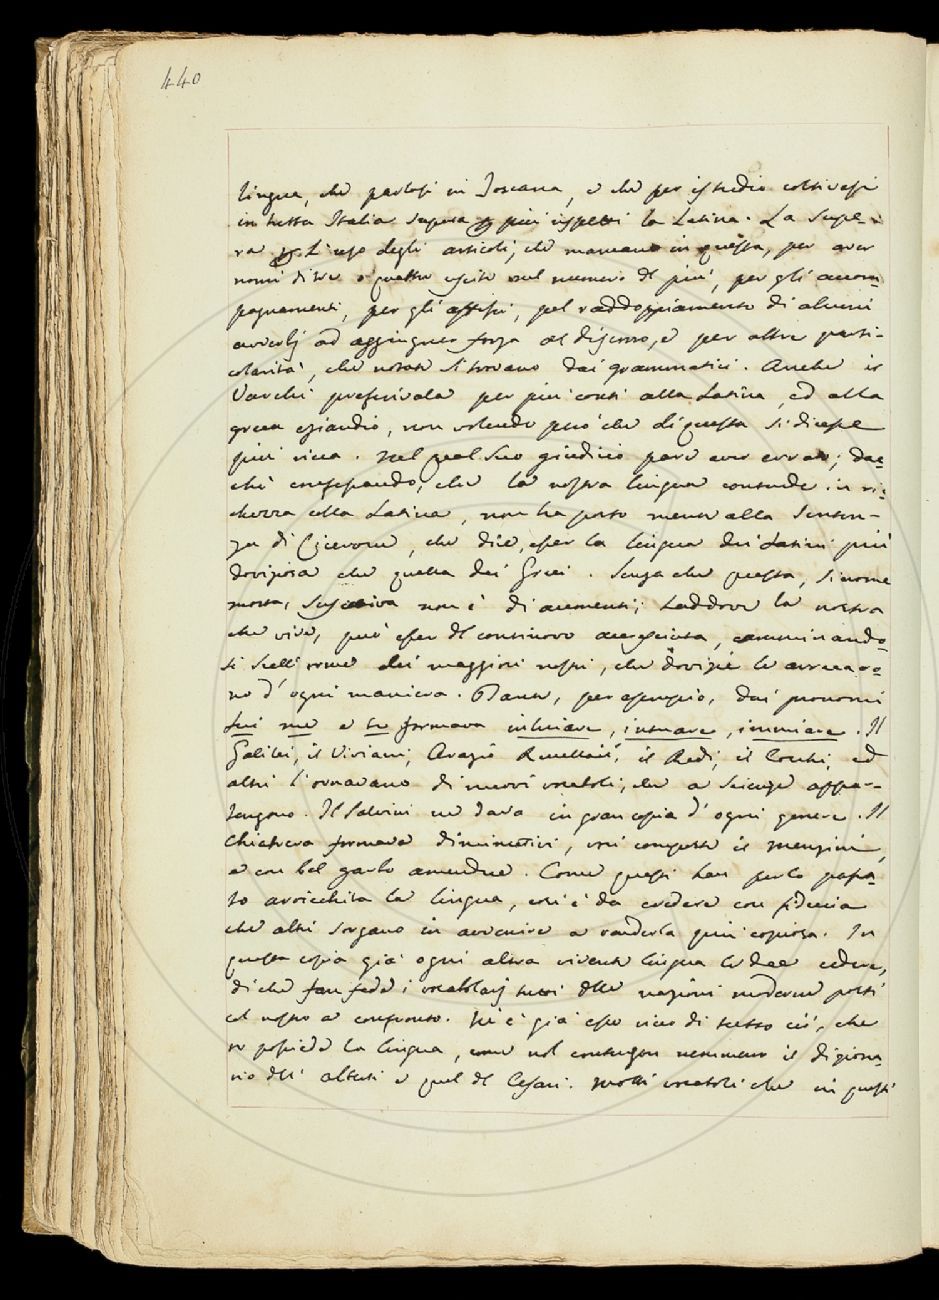 440
lingua, che parlasi in Toscana, e che per istudio coltivasi
in tutta Italia supera per più rispetti la Latina. La supe-
ra per l'uso degli articoli, che mancano in questa, per aver
nomi di tre o quattro uscite nel numero del più, per gli accom-
pagnamenti, per gli affissi, pel raddoppiamento di alcuni
avverbj ad aggiugner forza al discorso, e per altre parti-
colarità, che notate si trovano dai grammatici. Anche il
Varchi preferivala per più conti alla Latina, ed alla
greca eziandio, non volendo però che di questa si dicesse
più ricca. Nel qual suo giudicio pare aver errato; dac-
chè confessando, che la nostra lingua contende in ric-
chezza colla Latina, non ha posto mente alla senten-
za di Cicerone, che dice, esser la lingua dei Latini più
doviziosa che quella dei Greci. Senza che questa, siccome
morta, suscettiva non è di aumenti; laddove la nostra
che vive, può esser del continovo accresciuta, camminando-
si sull'orme dei maggiori nostri, che dovizie le arrecaro-
no d'ogni maniera. Dante, per esempio, dai pronomi
lui me e tu formava inluiare, intuare, immiare. Il
Galilei, il Viviani, Orazio Rucellai, il Redi, il Cocchi, ed
altri l'ornavano di nuovi vocaboli, che a Scienze appar-
tengono. Il Salvini ne dava in gran copia d'ogni genere. Il
Chiabrera formava diminutivi, voci composte il Menzini,
e con bel garbo amendue. Come questi han per lo passa-
to arricchita la lingua, così è da credere con fiducia
che altri sorgano in avvenire a renderla più copiosa. In
questa copia già ogni altra vivente lingua le dee cedere,
di che fan fede i vocabolarj tutti delle nazioni moderne posti
col nostro a confronto. Nè è già esso ricco di tutto ciò, che
si possiede la lingua, come nol contengon nemmeno il diziona-
rio dell'Alberti e quel del Cesari. Molti vocaboli che in questi